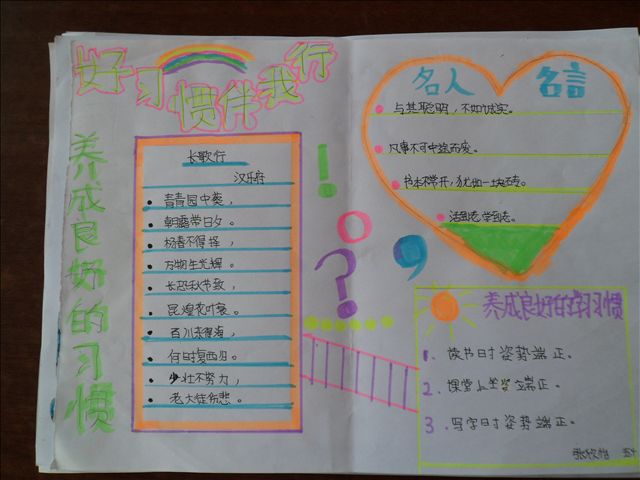 好习惯伴我行
养成良好的习惯
长歌行
汉乐府
青青园中葵，
朝露带日夕。
杨春不得择，
万物生光辉。
长恐秋节致，
昆煌衰。
百川东海，
何时复西归。
少壮不努力，
老大徒伤悲。
！
？
名人 名言
与其聪明，不如诚实。
凡事不可中途而废。
书本不常开，犹如一块
活到老，学到老。
养成良好的学习惯
1、读书时姿势端正。
2、课堂上坐姿端正。
3、写字时姿势端正。
张欣怡